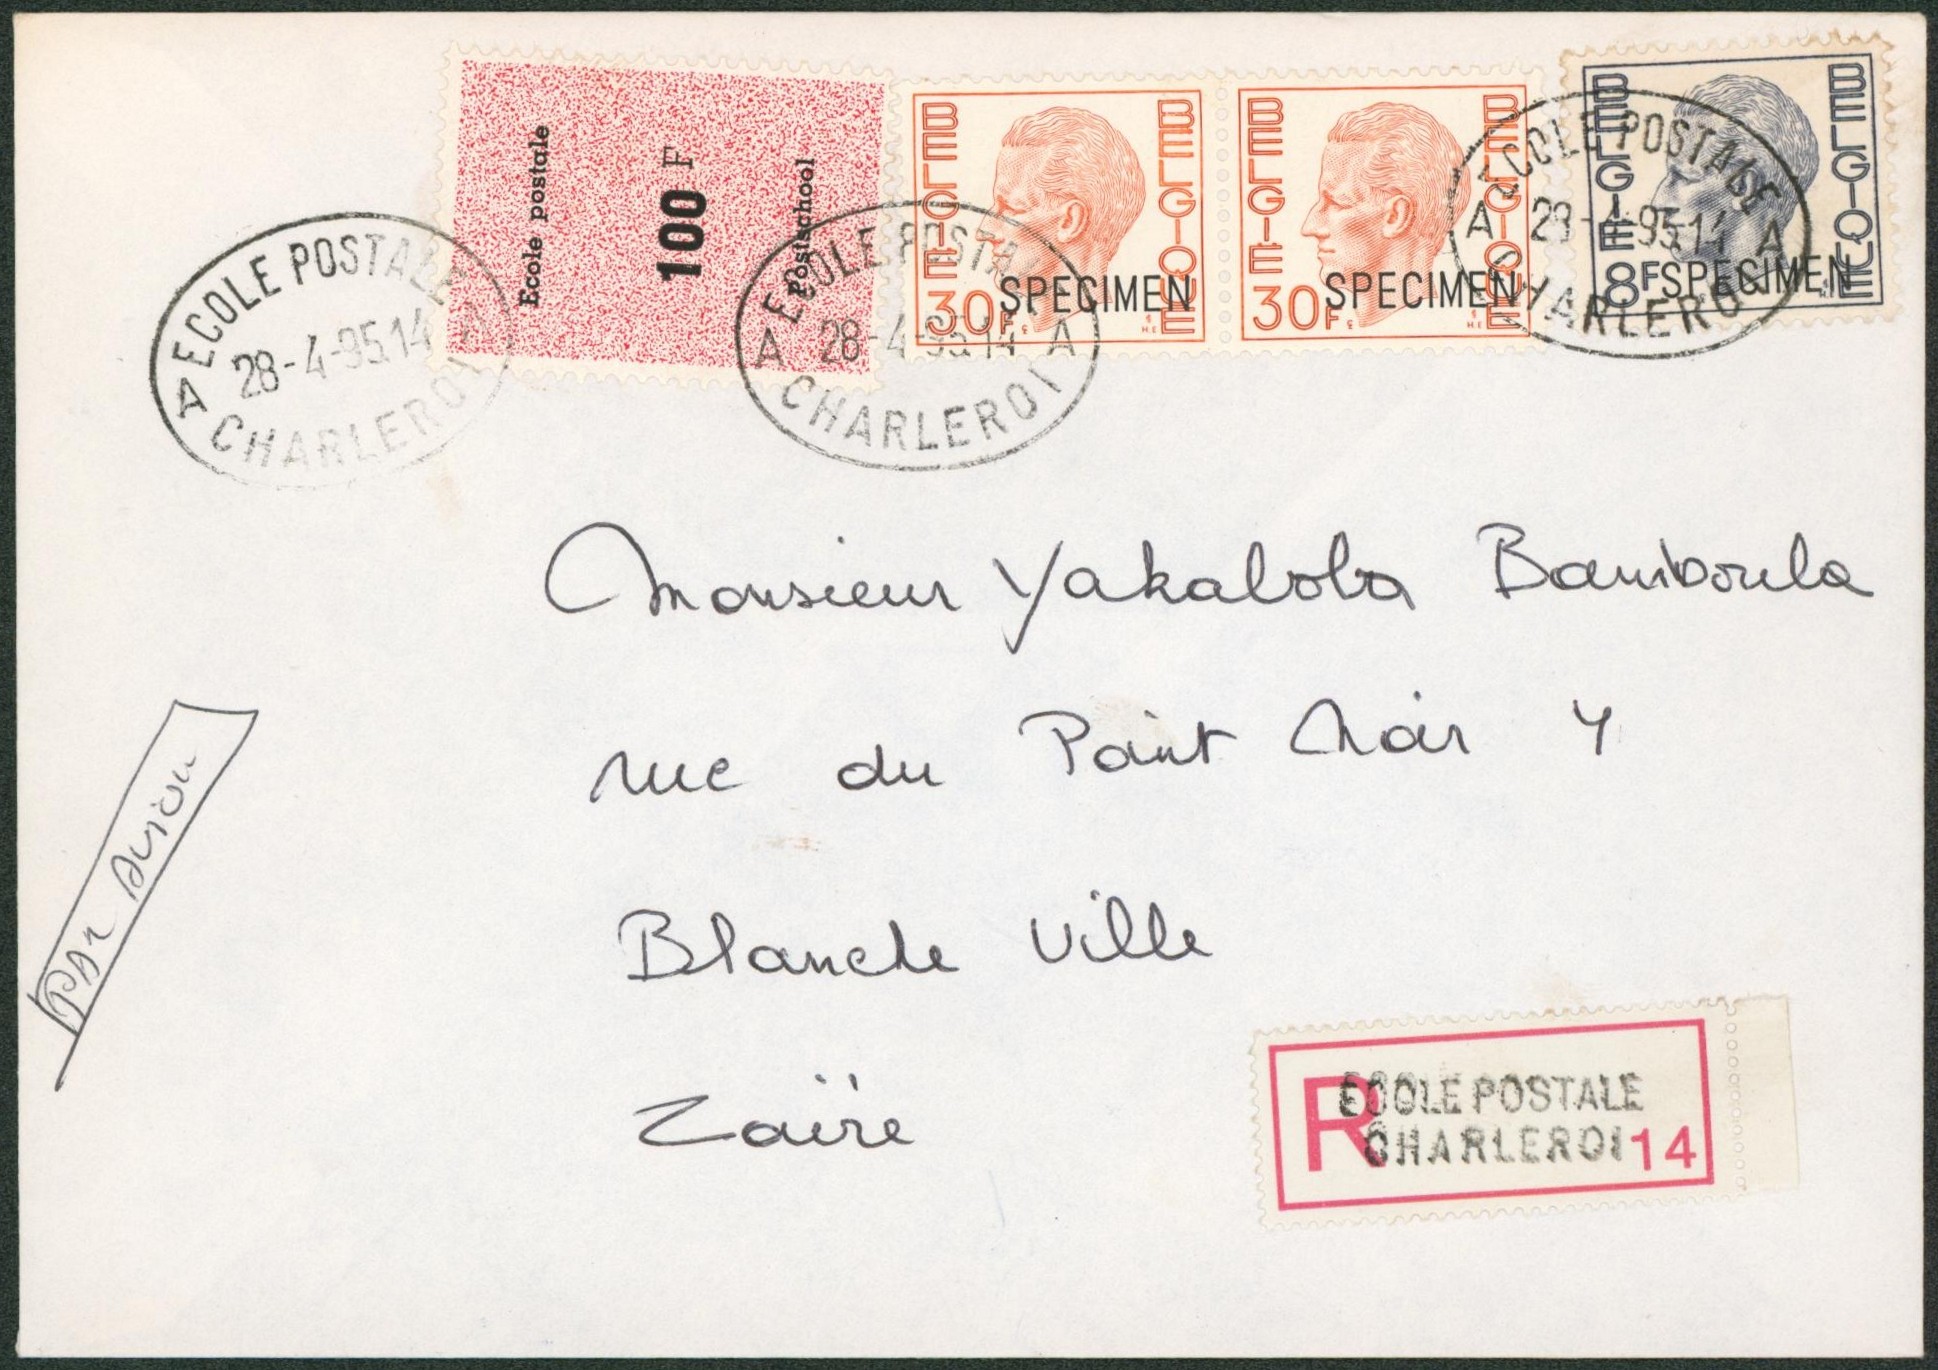 Ecole postale
100 F
Postschool
BELGIE BELGIQUE
30F SPECIMEN
BELGIE BELGIQUE
30F SPECIMEN
BELGIE BELGIQUE
8F SPECIMEN
ECOLE POSTALE
A 28-4-95 14 A
CHARLEROI
ECOLE POSTALE
A 28-4-95 14 A
CHARLEROI
ECOLE POSTALE
A 28-4-95 14 A
CHARLEROI
Monsieur Yakaloba Bamboula
rue du Point Noir 4
Blanche Ville
Zaïre
PAR AVION
R ECOLE POSTALE
CHARLEROI 14